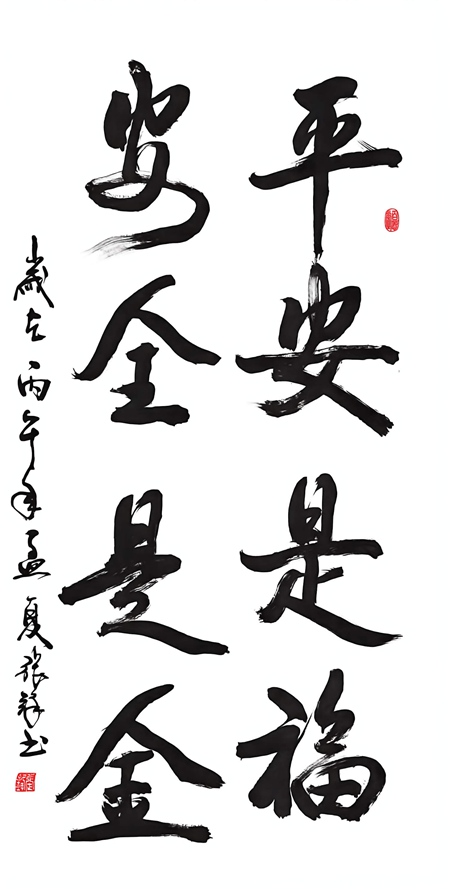 平安是福
安全是金
歲在丙午年孟夏張祥书